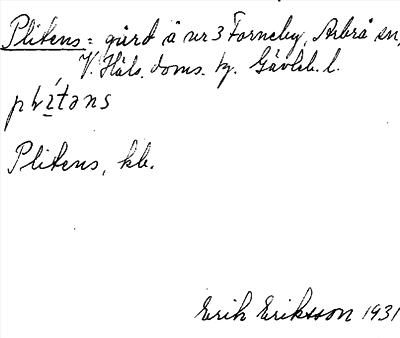 Plitens = gård å nr 3 Forneby, Arbrå sn,
V. Häls. doms. tg. Gävleb. l.
Plitens, kb.
Erik Eriksson 1931